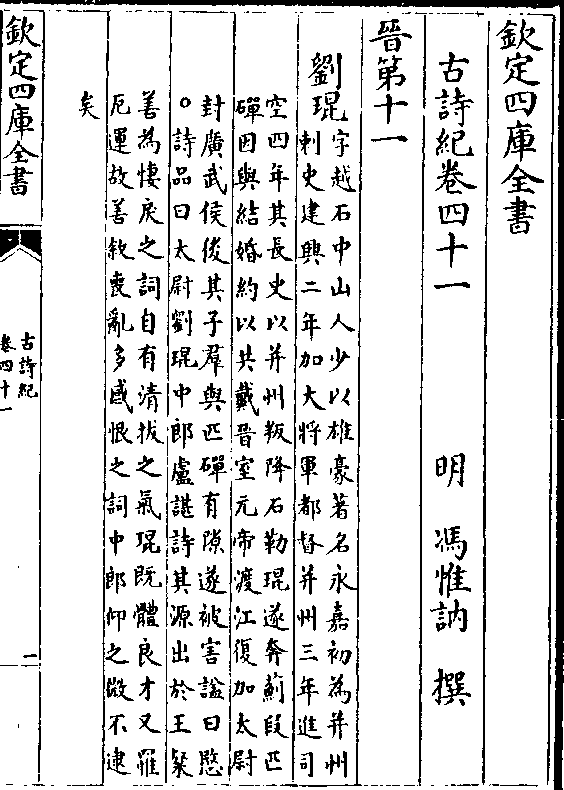 欽定四庫全書
古詩紀卷四十一
明 馮惟訥 撰
晉第十一
劉琨
字越石中山人少以雄豪著名永嘉初為并州
刺史建興二年加大將軍都督并州三年進司
空四年其長史以并州叛降石勒琨遂奔薊段匹
磾因與結婚約以共戴晉室元帝渡江復加太尉
封廣武侯後其子羣與匹磾有隙遂被害謚曰愍
○詩品曰太尉劉琨中郎盧諶詩其源出於王粲
善為悽戾之詞自有清拔之氣琨既體良才又罹
厄運故善敘喪亂多感恨之詞中郎仰之微不逮
矣
欽定四庫全書
古詩紀
卷四十一
一